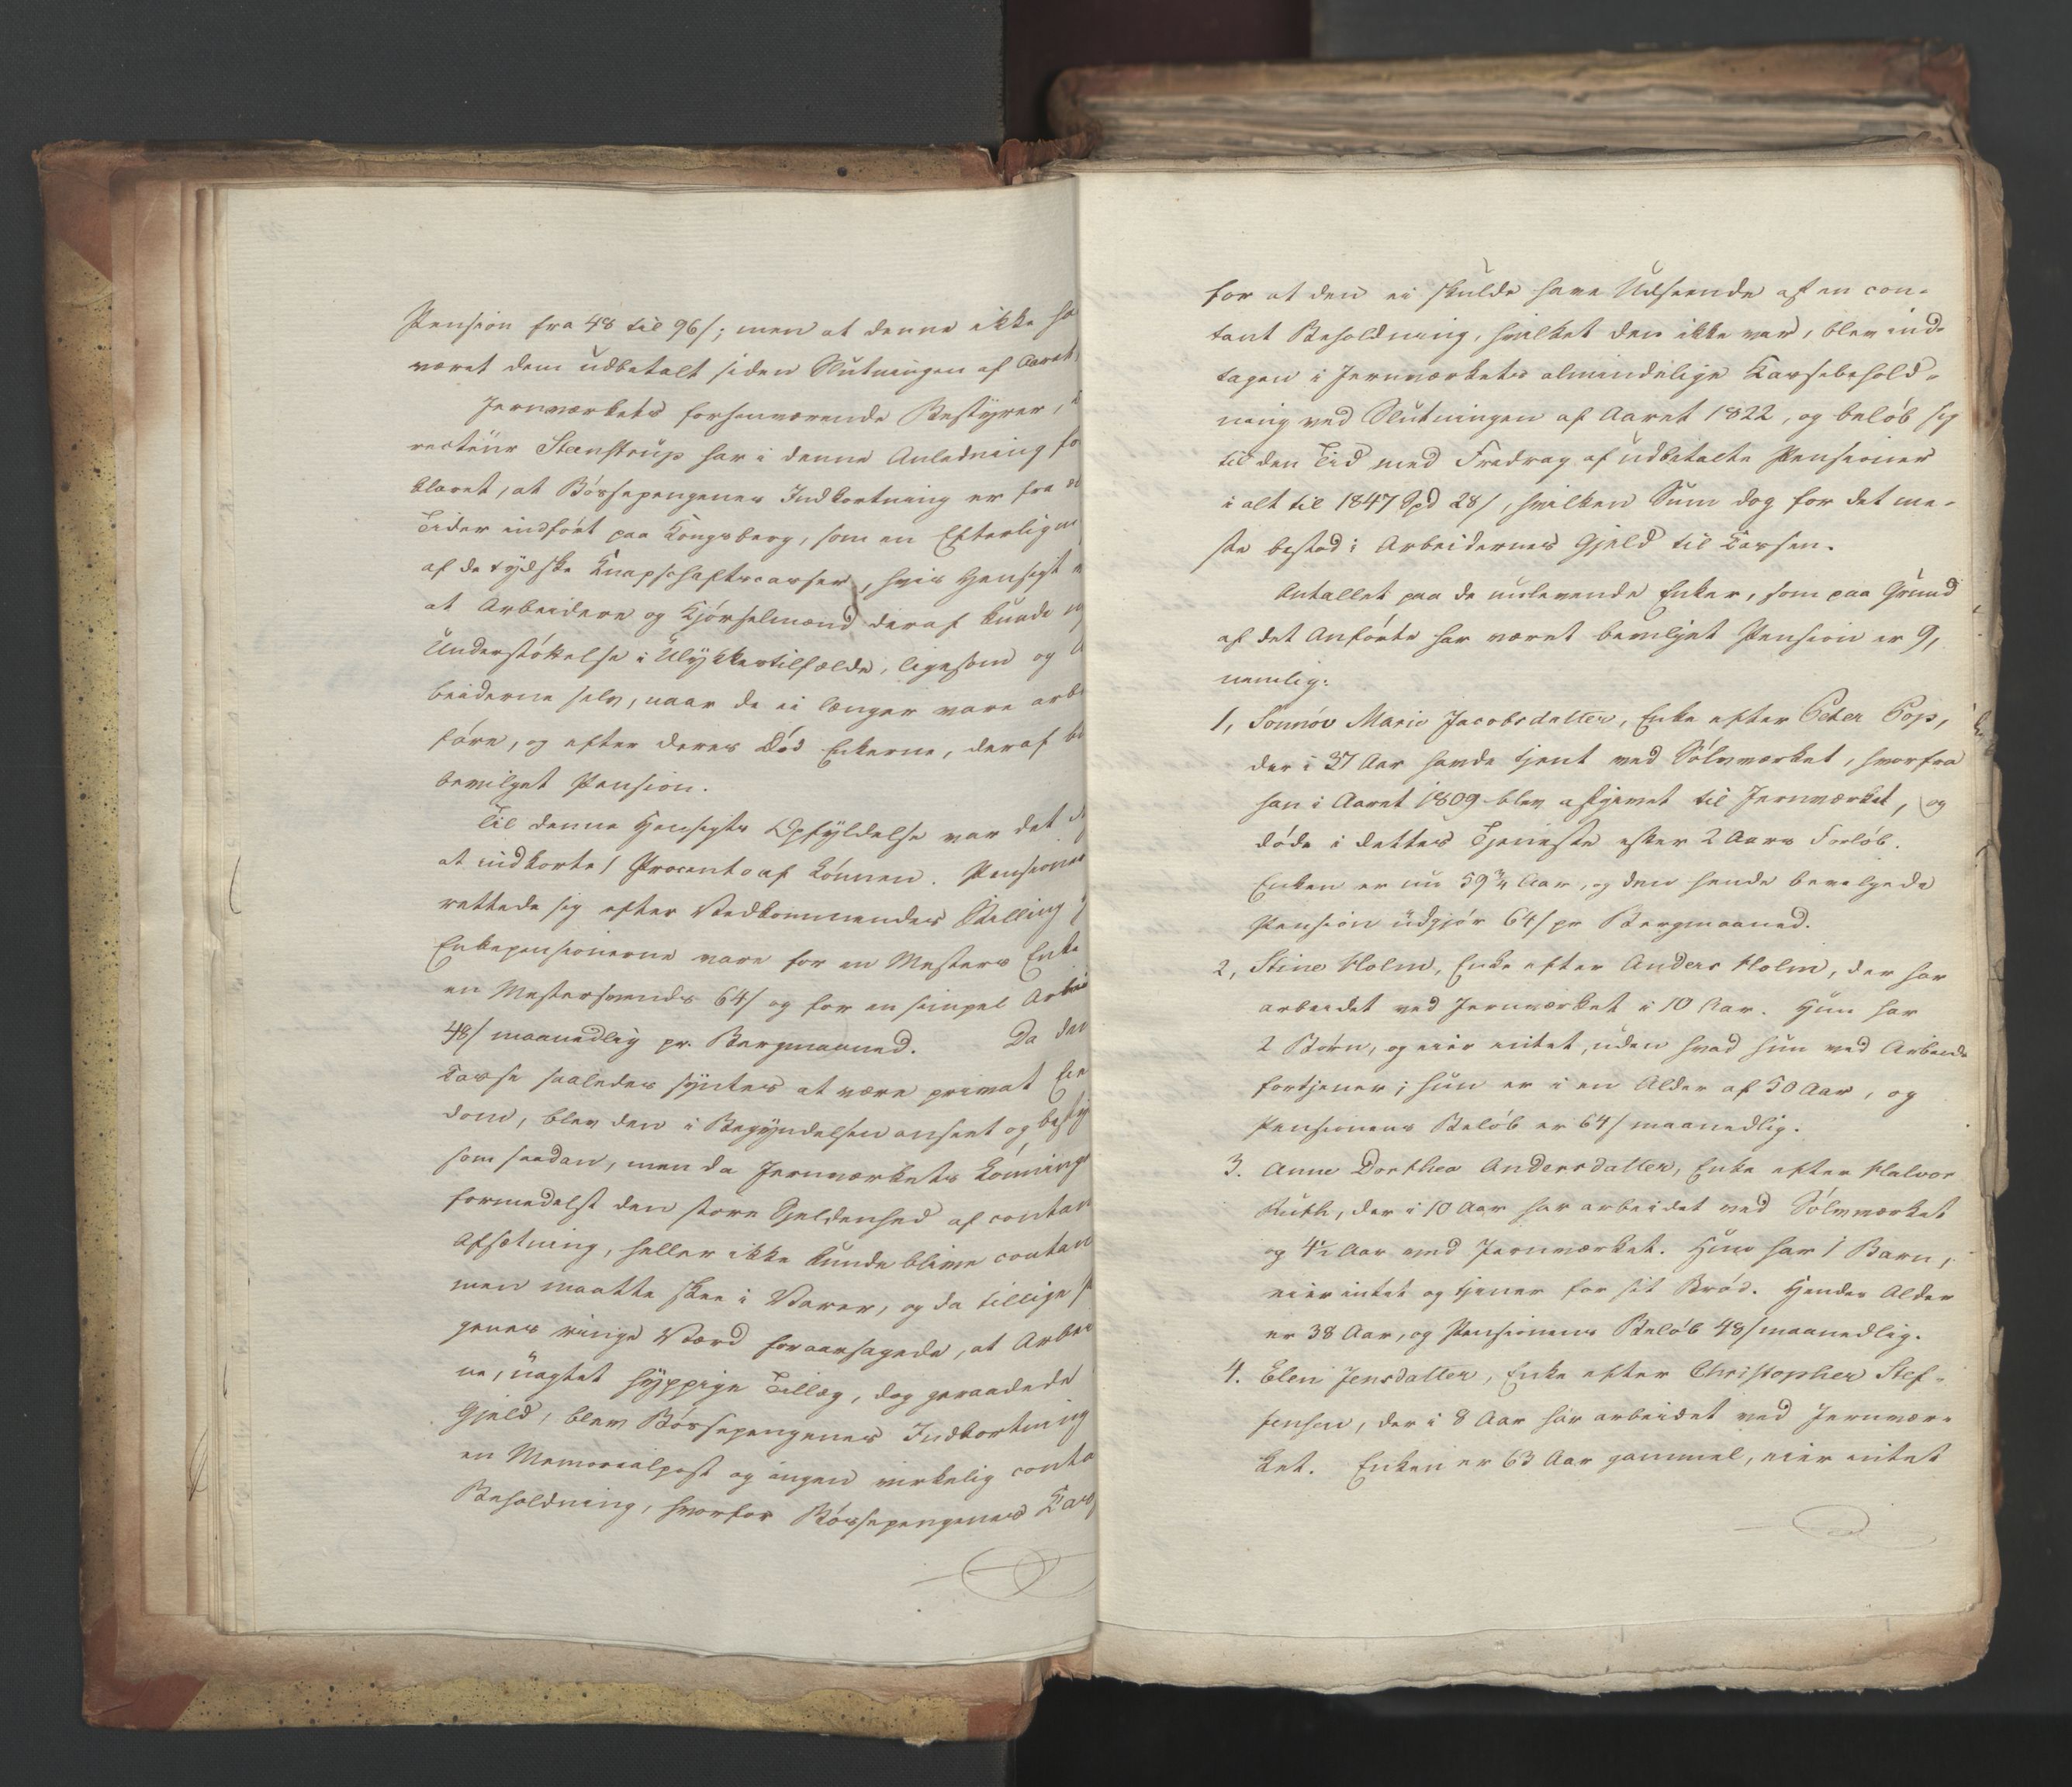 Pension fra 48 til 96/; men at denne ikke ha
været dem udbetalt siden Slutningen af Aaret
Jernværkets forhenværende Bestyrer,
recteur Stenstrup har i denne Anledning fo
klaret, at Bössepengenes Indkortning er fra
Tider indfört paa Kongsberg, som en Efterlign
af de tydske Knapschaftscasser, hvis Hensigt
at Arbeidere og Kjörselmænd deraf kunde
Understöttelse i Ulykkestilfælde, ligesom og A
beiderne selv, naar de ei længer vare arb
före, og efter deres Död Enkerne, deraf bl
bevilget Pension.
Til denne Hensigts Opfyldelse var det
at indkorte 1 Procento af Lönnen. Pensioner
rettede sig efter Vedkommendes Stilling
Enkepensionerne vare for en Mesters Enke
en Mestersvends 64/ og for en simpel Arbei
48/ maanedlig pr. Bergmaaned. Da den
Casse saaledes syntes at være privat Eien
dom, blev den i Begyndelsen anseet og besty
som saadan, men da Jernværkets Lönning
formedelst den store Sjeldenhed af contan
Afsætning, heller ikke kunde blive contan
men maatte skee i Varer, og da tillige
genes ringe Værd foraarsagede, at Arbei
ne, uagtet hyppige Tillæg, dog geraadede
Gjeld, blev Bössepengenes Indkortning
en Memorialpost og ingen virkelig conta
Beholdning, hvorfor Bössepengenes Cas
for at den ei skulde have Udseende af en con-
tant Beholdning, hvilket den ikke var, blev ind-
tagen i Jernværkets almindelige Kassebehold-
ning ved Slutningen af Aaret 1822, og belöb sig
til den Tid med Fradrag af udbetalte Pensioner
i alt til 1847 Spd 28/, hvilken Sum dog for det me-
ste bestod i Arbeidernes Gjeld til Cassen.
Antallet paa de nulevende Enker, som paa Grund
af det Anförte har været bevilget Pension er 9,
nemlig:
1, Sönnöv Marie Jacobsdatter, Enke efter Peter Pop,
der i 37 Aar havde tjent ved Sölvværket, hvorfra
han i Aaret 1809 blev afgivet til Jernværket, og
döde i dettes Tjeneste efter 2 Aars Forlöb.
Enken er nu 59 3/4 Aar, og den hende bevilgede
Pension udgjör 64/ pr Bergmaaned.
2, Stine Holm, Enke efter Anders Holm, der har
arbeidet ved Jernværket i 10 Aar. Hun har
2 Börn, og eier intet, uden hvad hun ved Arbeide
fortjener; hun er i en Alder af 50 Aar, og
Pensionens Belöb er 64/ maanedlig.
3. Anne Dorthea Andersdatter, Enke efter Halvor
Ruth, der i 10 Aar har arbeidet ved Sölvværket
og 4 1/2 Aar ved Jernværket. Hun har 1 Barn,
eier intet og tjener for sit Bröd. Hendes Alder
er 38 Aar, og Pensionens Belöb 48/ maanedlig.
4. Elen Jensdatter, Enke efter Christopher Stef-
fensen, der i 8 Aar har arbeidet ved Jernvær-
ket. Enken er 63 Aar gammel, eier intet